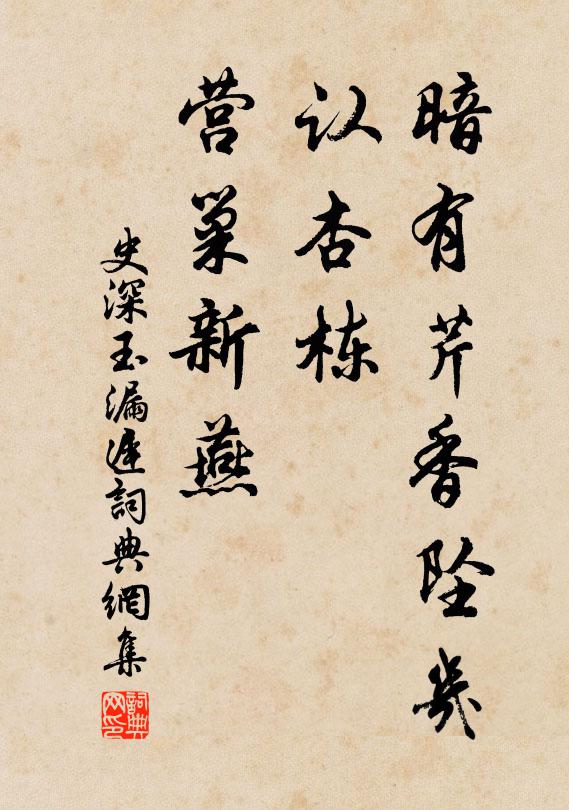 暗有芹香坠几
认杏栋
营巢新燕
史深玉漏遲詞典網集
詞典网印